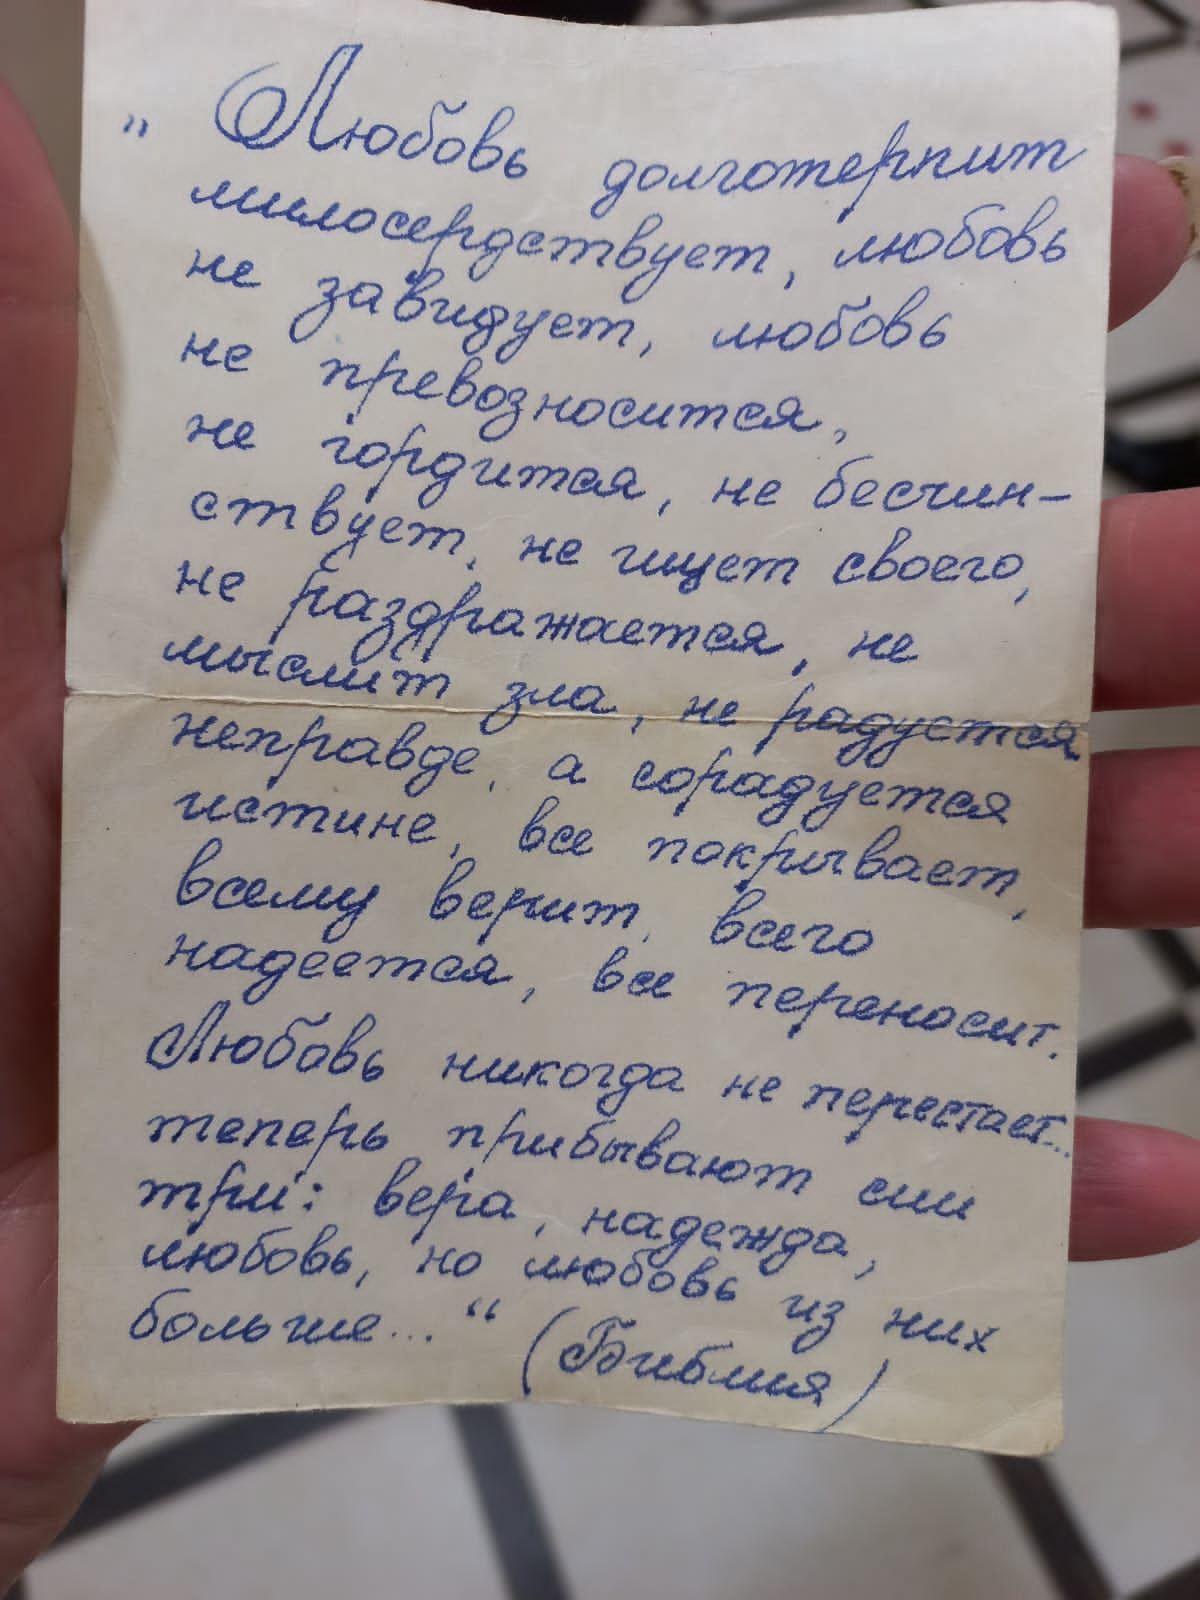 „ Любовь долготерпит
милосердствует, любовь
не завидует, любовь
не превозносится,
не гордится, не бесчин-
ствует, не ищет своего,
не раздражается, не
мыслит зла, не радуется
неправде, а сорадуется
истине, все покрывает,
всему верит, всего
надеется, все переносит.
Любовь никогда не перестает...
теперь прибывают сии
три: вера, надежда,
любовь, но любовь из них
больше..." (Библия)